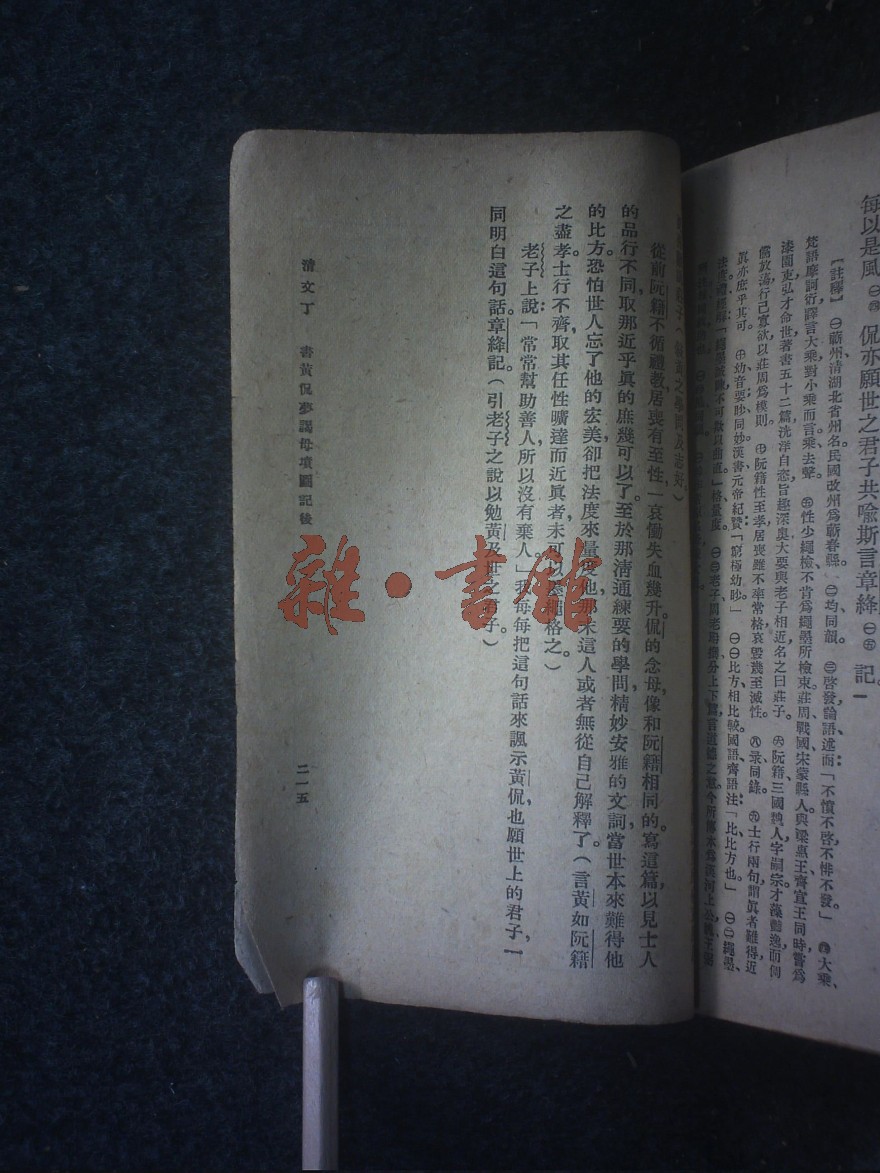 每以是風㊀㊃侃亦願世之君子共喩斯言章絳㊀㊄記。一
【註釋】㊀蘄州清湖北省州名民國改州爲蘄春縣。㊁均同韻。㊂啓發論語述而：「不憤不啓不悱不發。」㊃大乘、
梵語摩訶衍譯言大乘對小乘而言乘去聲。㊄性少繩檢不肯爲繩墨所檢束莊周戰國宋蒙縣人與梁惠王齊宣王同時嘗爲
漆園吏弘才命世著書五十二篇洸洋自恣旨趣深奧大要與老子相近名之曰莊子。㊅阮籍三國魏人字嗣宗才藻艷逸而倜
儻放蕩行己寡欲以莊周爲模則㊆阮籍性至孝居喪雖不率常格哀毀幾至滅性。㊇彔同錄。㊈士行兩句謂眞者難得近
眞亦庶乎其可。㊉幼音要眇同妙漢書元帝紀贊「窮極幼眇」㊀㊀比方相比較國語齊語注：「比比方也」㊀㊁繩墨、
從前阮籍不循禮教居喪有至性一哀慟失血幾升。侃的念母像和阮籍相同的。寫這篇以見士人
的品行不同取那近乎眞的庶幾可以了。至於那清通練要的學問精妙安雅的文詞當世本來難得他
的比方。恐怕世人忘了他的宏美卻把法度來量度他那末這人或者無從自己解釋了。（言黃如阮籍
之盡孝士行不齊取其任性曠達而近眞者未可以繩格之。）
老子上說：「常常幫助善人所以沒有棄人」我每每把這句話來諷示黃侃，也願世上的君子，一
同明白這句話。章絳記（引老子之說以勉黃及世之君子。）
清文丁　書黃侃夢謁母墳圖記後
二一五
雜·書館